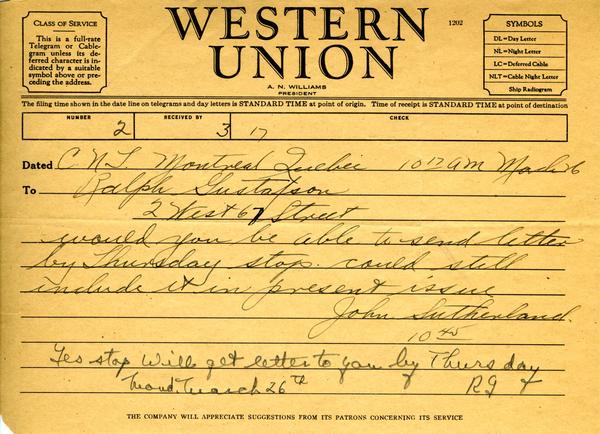 CLASS OF SERVICE
This is a full-rate
Telegram or Cable-
gram unless its de-
ferred character is in-
dicated by a suitable
symbol above or pre-
ceding the address.
WESTERN
UNION
A. N. WILLIAMS
PRESIDENT
1202
SYMBOLS
DL=Day Letter
NL=Night Letter
LC=Deferred Cable
NLT=Cable Night Letter
Ship Radiogram
The filing time shown in the date line on telegrams and day letters is STANDARD TIME at point of origin. Time of receipt is STANDARD TIME at point of destination
NUMBER RECEIVED BY CHECK
2 3 17
Dated C.N.T Montreal Quebec 10 17 AM
To Ralph Gustafson
2 West 67 Street
would you be able to send letter
by Thursday stop. could still
include it in present issue
John Sutherland.
10 45
Yes stop Will get letter to you by Thursday
Mond. March 26th RG
THE COMPANY WILL APPRECIATE SUGGESTIONS FROM ITS PATRONS CONCERNING ITS SERVICE